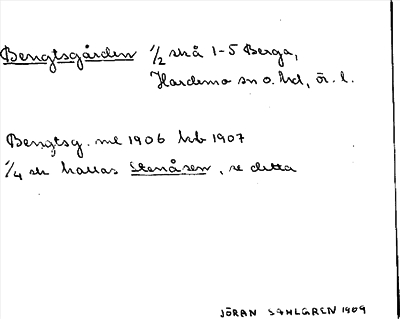 Bengtsgården 1/2 skå 1-5 Berga,
Hardemo sn o. hd, ör. l.
Bengtsg. ml 1906 hb 1907
1/4 sk kallas Stenåsen, se detta
JÖRAN SAHLGREN 1909